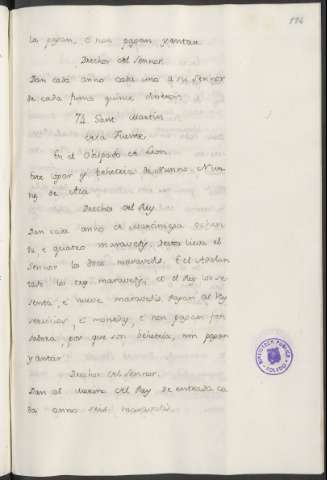 194
la pagan, e non pagan yantar
Drechos del Sennor
Dan cada anno cada uno a su Sennor
de cada fumo quince dineros.
71 Sant Martin
de la Fuente
En el Obispado de Leon.
Este logar es behetria de Nunno Nun
nez de Aza
Drechos del Rey.
Dan cada anno de Martiniega ochen
ta e quatro maravedis, desta lieva el
Sennor los doce maravedis. E el Adelan
tado los tres maravedis, et el Rey los se
senta, e nueve maravedis. Pagan al Rey
servicios, e moneda, e non pagan fon
sadera, por que son behetria, nin pagan
yantar
Drechos del Sennor.
Dan al Merino del Rey de entrada ca
da anno maravedis.
BIBLIOTECA PUBLICA
TOLEDO